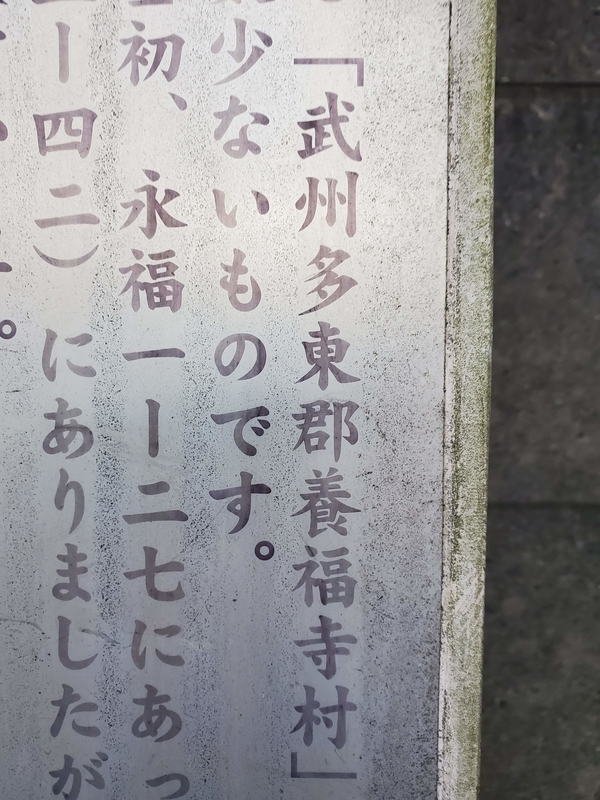 「武州多東郡養福寺村」
少ないものです。
初、永福一ー二七にあっ
ー四二）にありましたが
。